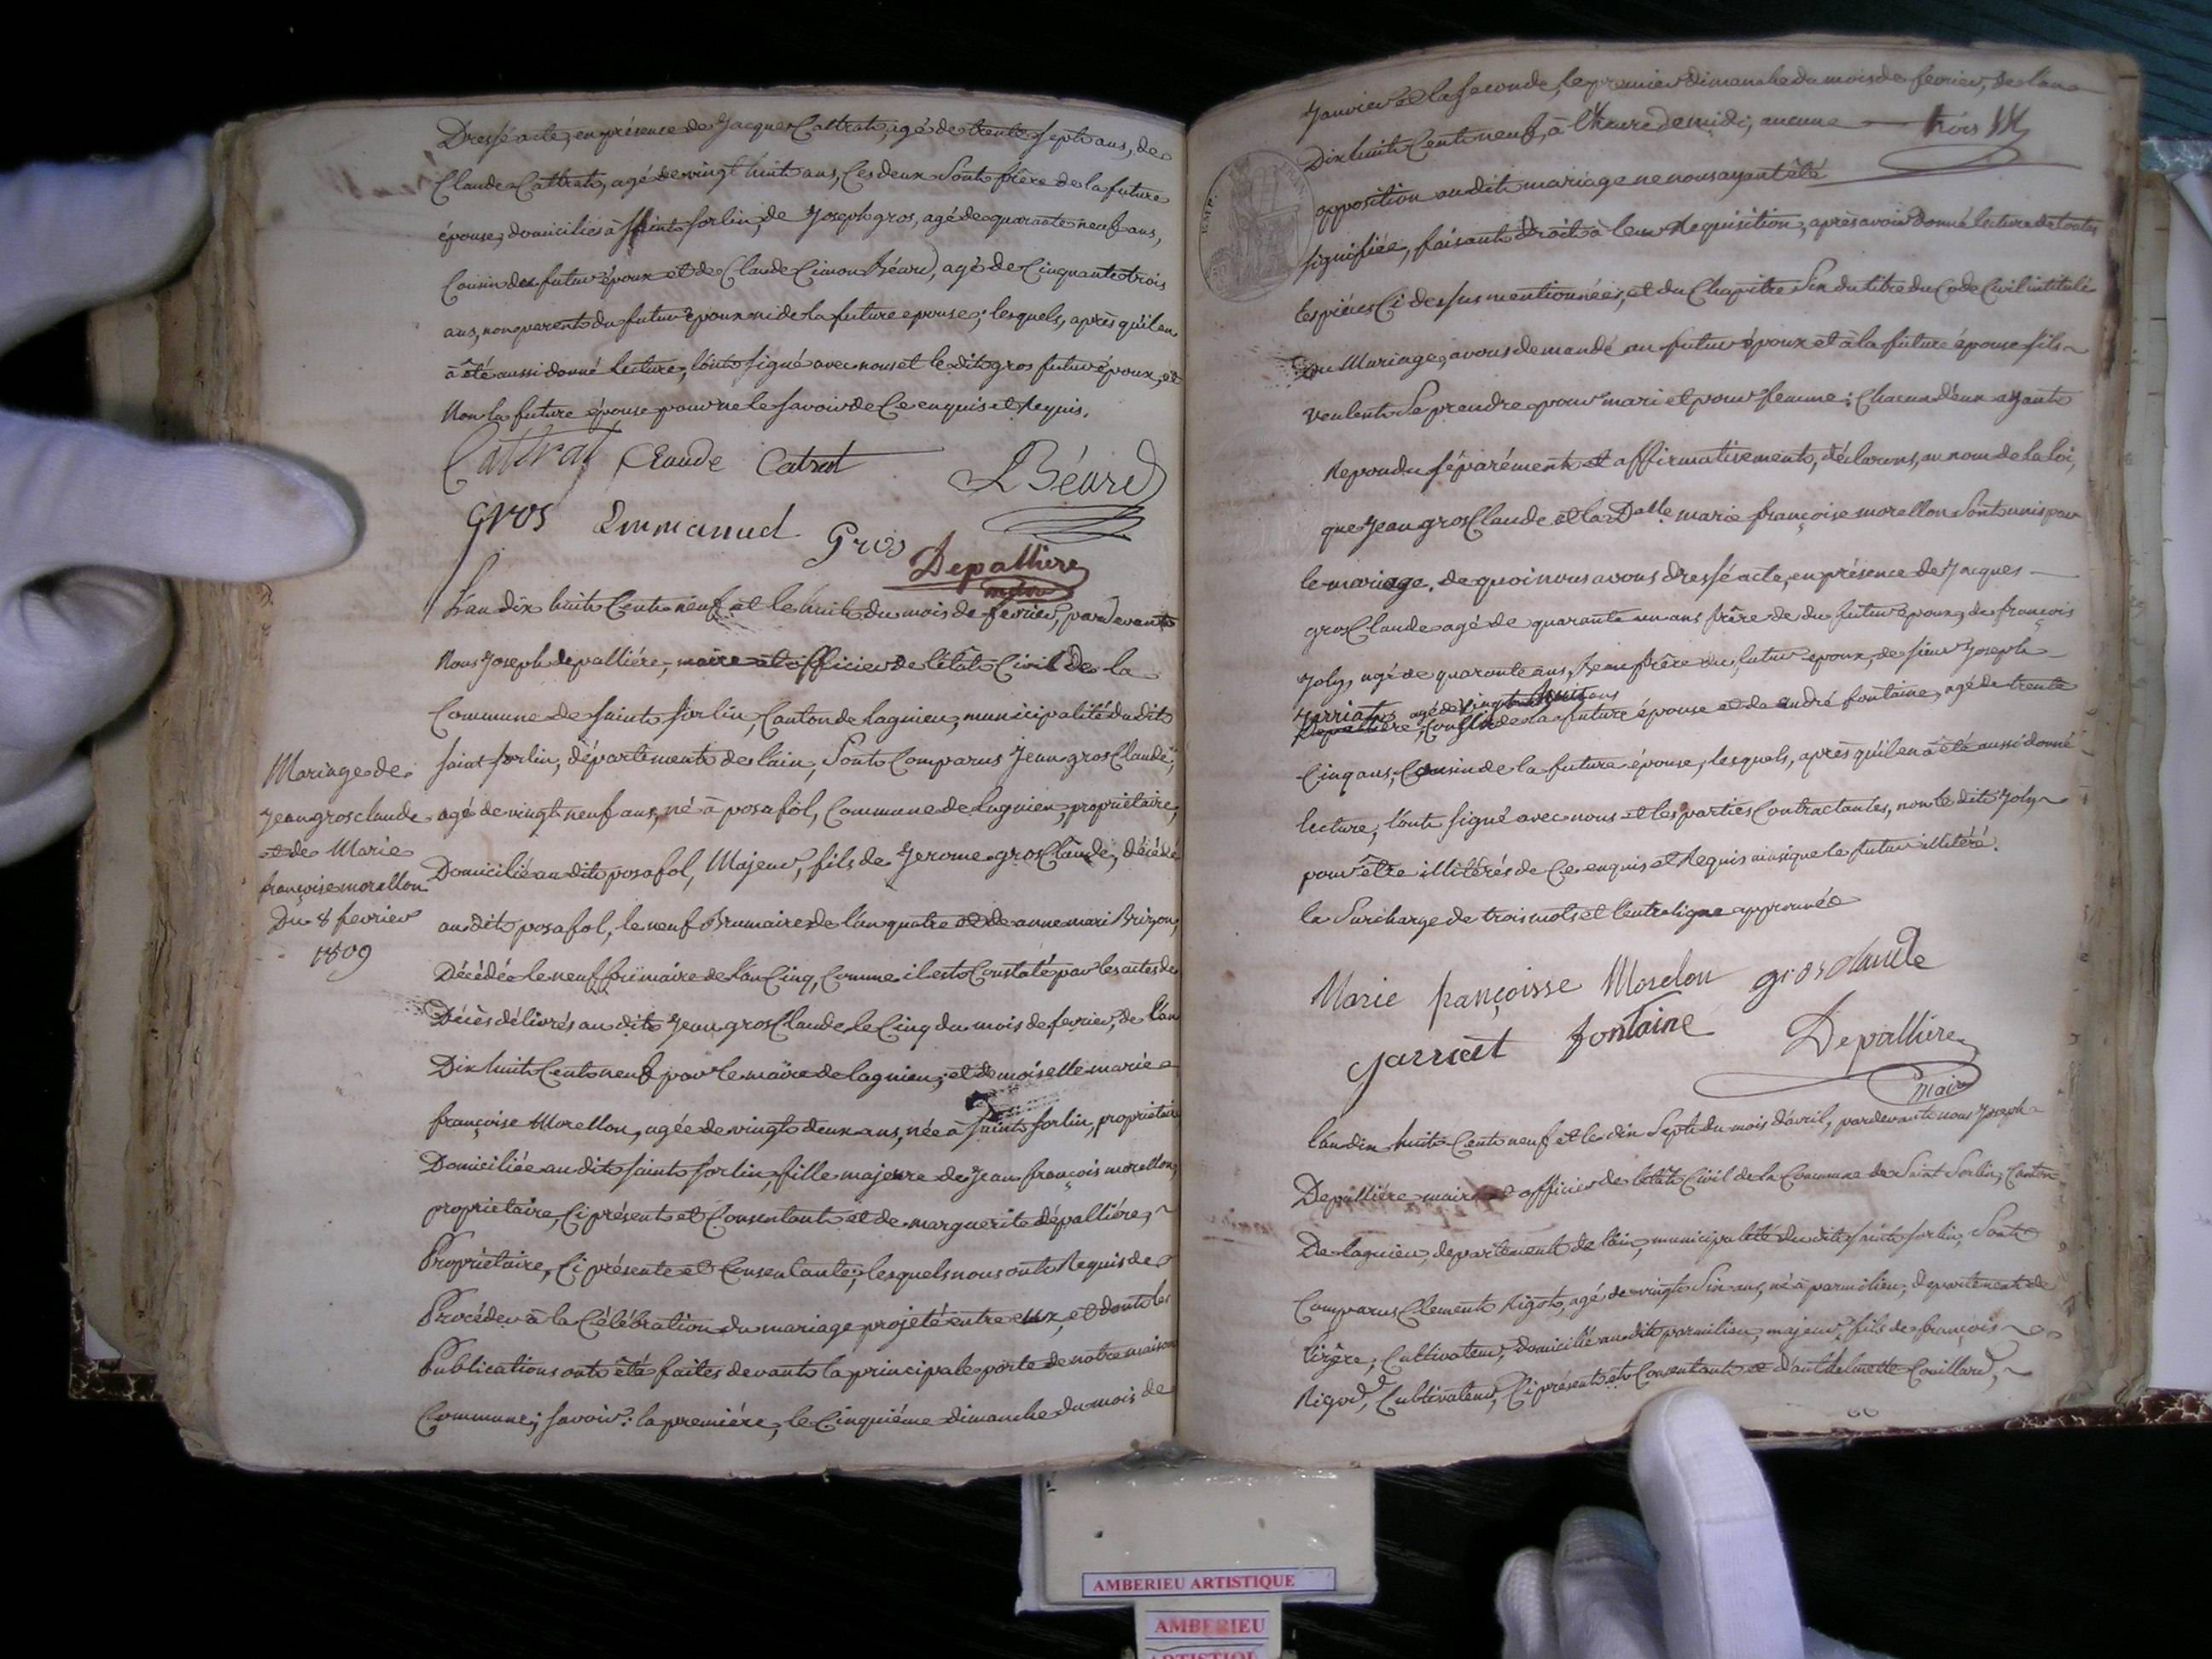 Dressé acte, en présence de Jacques Cattrat, agé de trente sept ans, de
Claude Cattrat, agé de vingt huit ans, ces deux sont frère de la future
épouse, domiciliés à saint sorlin, de Joseph gros, agé de quarante neuf ans,
Cousin du futur époux et de Claude Béard, agé de Cinquante trois
ans, non parent du futur époux ni de la future epouse; lesquels, après qu'il en
à été aussi donné lecture, l'ont signé avec nous et le dit gros futur époux, et
Non la future épouse pour ne le savoir de ce enquis et Requis.
Cattrat Claude Catrat
LBéard
Gros Emmanuel Gros
Depallière
maire
L'an dix huit Cent neuf et le huit du mois de fevrier, pardevant
Nous Joseph depalliére, maire et officier de l'état Civil de la
Commune de saint sorlin, Canton de lagnieu, municipalité du dit
saint sorlin, département de l'ain, sont Comparus Jean grosClaude,
Mariage de
Jean grosclaude
et de Marie
françoise morellon
Du 8 fevrier
1809
agé de vingt neuf ans, né à posafol, Commune de lagnieu, propriétaire,
Domicilié au dit posafol, Majeur, fils de Jerome grosClaude, décédé
au dit posafol, le neuf Brumaire de l'an quatre et de anne mari Brizon,
Décédée le neuf frimaire de l'an Cinq, Comme il est Constaté par les actes de
Décès délivrés au dit Jean grosClaude le Cinq du mois de fevrier, de l'an
Dix huit Cent neuf par le maire de lagnieu; et demoiselle marie
françoise Morellon, agée de vingt deux ans, née à saint sorlin, propriétaire
Domiciliée au dit saint sorlin, fille majeure de Jean françois morellon,
propriétaire, Ci présent et Consentant et de marguerite dépalliére,
Propriétaire, Ci présente et Consentante; lesquels nous ont Requis de
Procéder à la Célébration du mariage projeté entre eux, et dont les
Publications ont été faites devant la principale porte de notre maison
Commune; savoir: la premiére, le Cinquiéme dimanche du mois de
Janvier et la seconde, le premier dimanche du mois de fevrier, de l'an
Dix huit Cent neuf, à l'heure de midi, aucune trois
opposition au dit mariage ne nous ayant été
signifiée, faisant droit à leur Requisition, après avoir donné lecture de toutes
les piéces Ci dessus mentionnées, et du Chapitre Six du titre du Code Civil intitulé
Du Mariage, avons demandé au futur époux et à la future épouse s'ils
veulent se prendre pour mari et pour femme; Chacun d'eux ayant
Repondu séparément et affirmativement, déclarons, au nom de la loi,
que Jean grosClaude et la Dlle marie françoise morellon sont unis par
le mariage. de quoi nous avons dressé acte, en présence de Jacques
grosClaude agé de quarante un ans frère de du futur époux, de françois
Joly, agé de quarante ans, beau frère du futur epoux, de sieur Joseph
Jarriat, agé de vingt huit ans
Cousin de la future épouse et de André fontaine, agé de trente
Cinq ans, Cousin de la future épouse, lesquels, après qu'il en à été aussi donné
lecture, l'ont signé avec nous et les parties Contractantes, non le dit Joly
pour être illitérés de ce enquis et Requis ainsi que le futur illitéré.
la surcharge de trois mots et l'entreligne approuvée
Marie françoisse Morelon grosclaude
Jarriat fontaine Depallière
maire
L'an dix huit Cent neuf et le dix Sept du mois d'avril, pardevant nous Joseph
Depalliére maire et officier de l'état Civil de la Commune de Saint Sorlin, Canton
De lagnieu, departement de l'ain, municipalité du dit saint sorlin, Sont
Comparus Clement Rigot, agé de vingt Six ans, né à parmilieu, departement de
l'izère, Cultivateur, Domicilié au dit parmilieu, majeur, fils de françois
Rigod, Cultivateur, Ci présent et Consentant et d'anthelmette Couillard,
AMBERIEU ARTISTIQUE
AMBERIEU
ARTISTIQUE